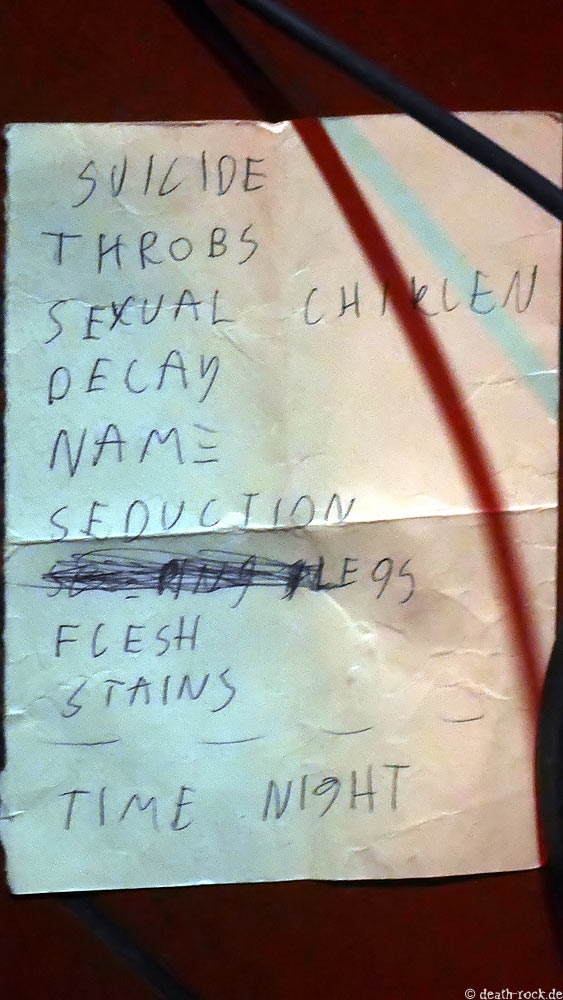 SUICIDE
THROBS
SEXUAL CHIKCEN
DECAY
NAME
SEDUCTION
LEGS
FLESH
STAINS
TIME NIGHT
© death-rock.de